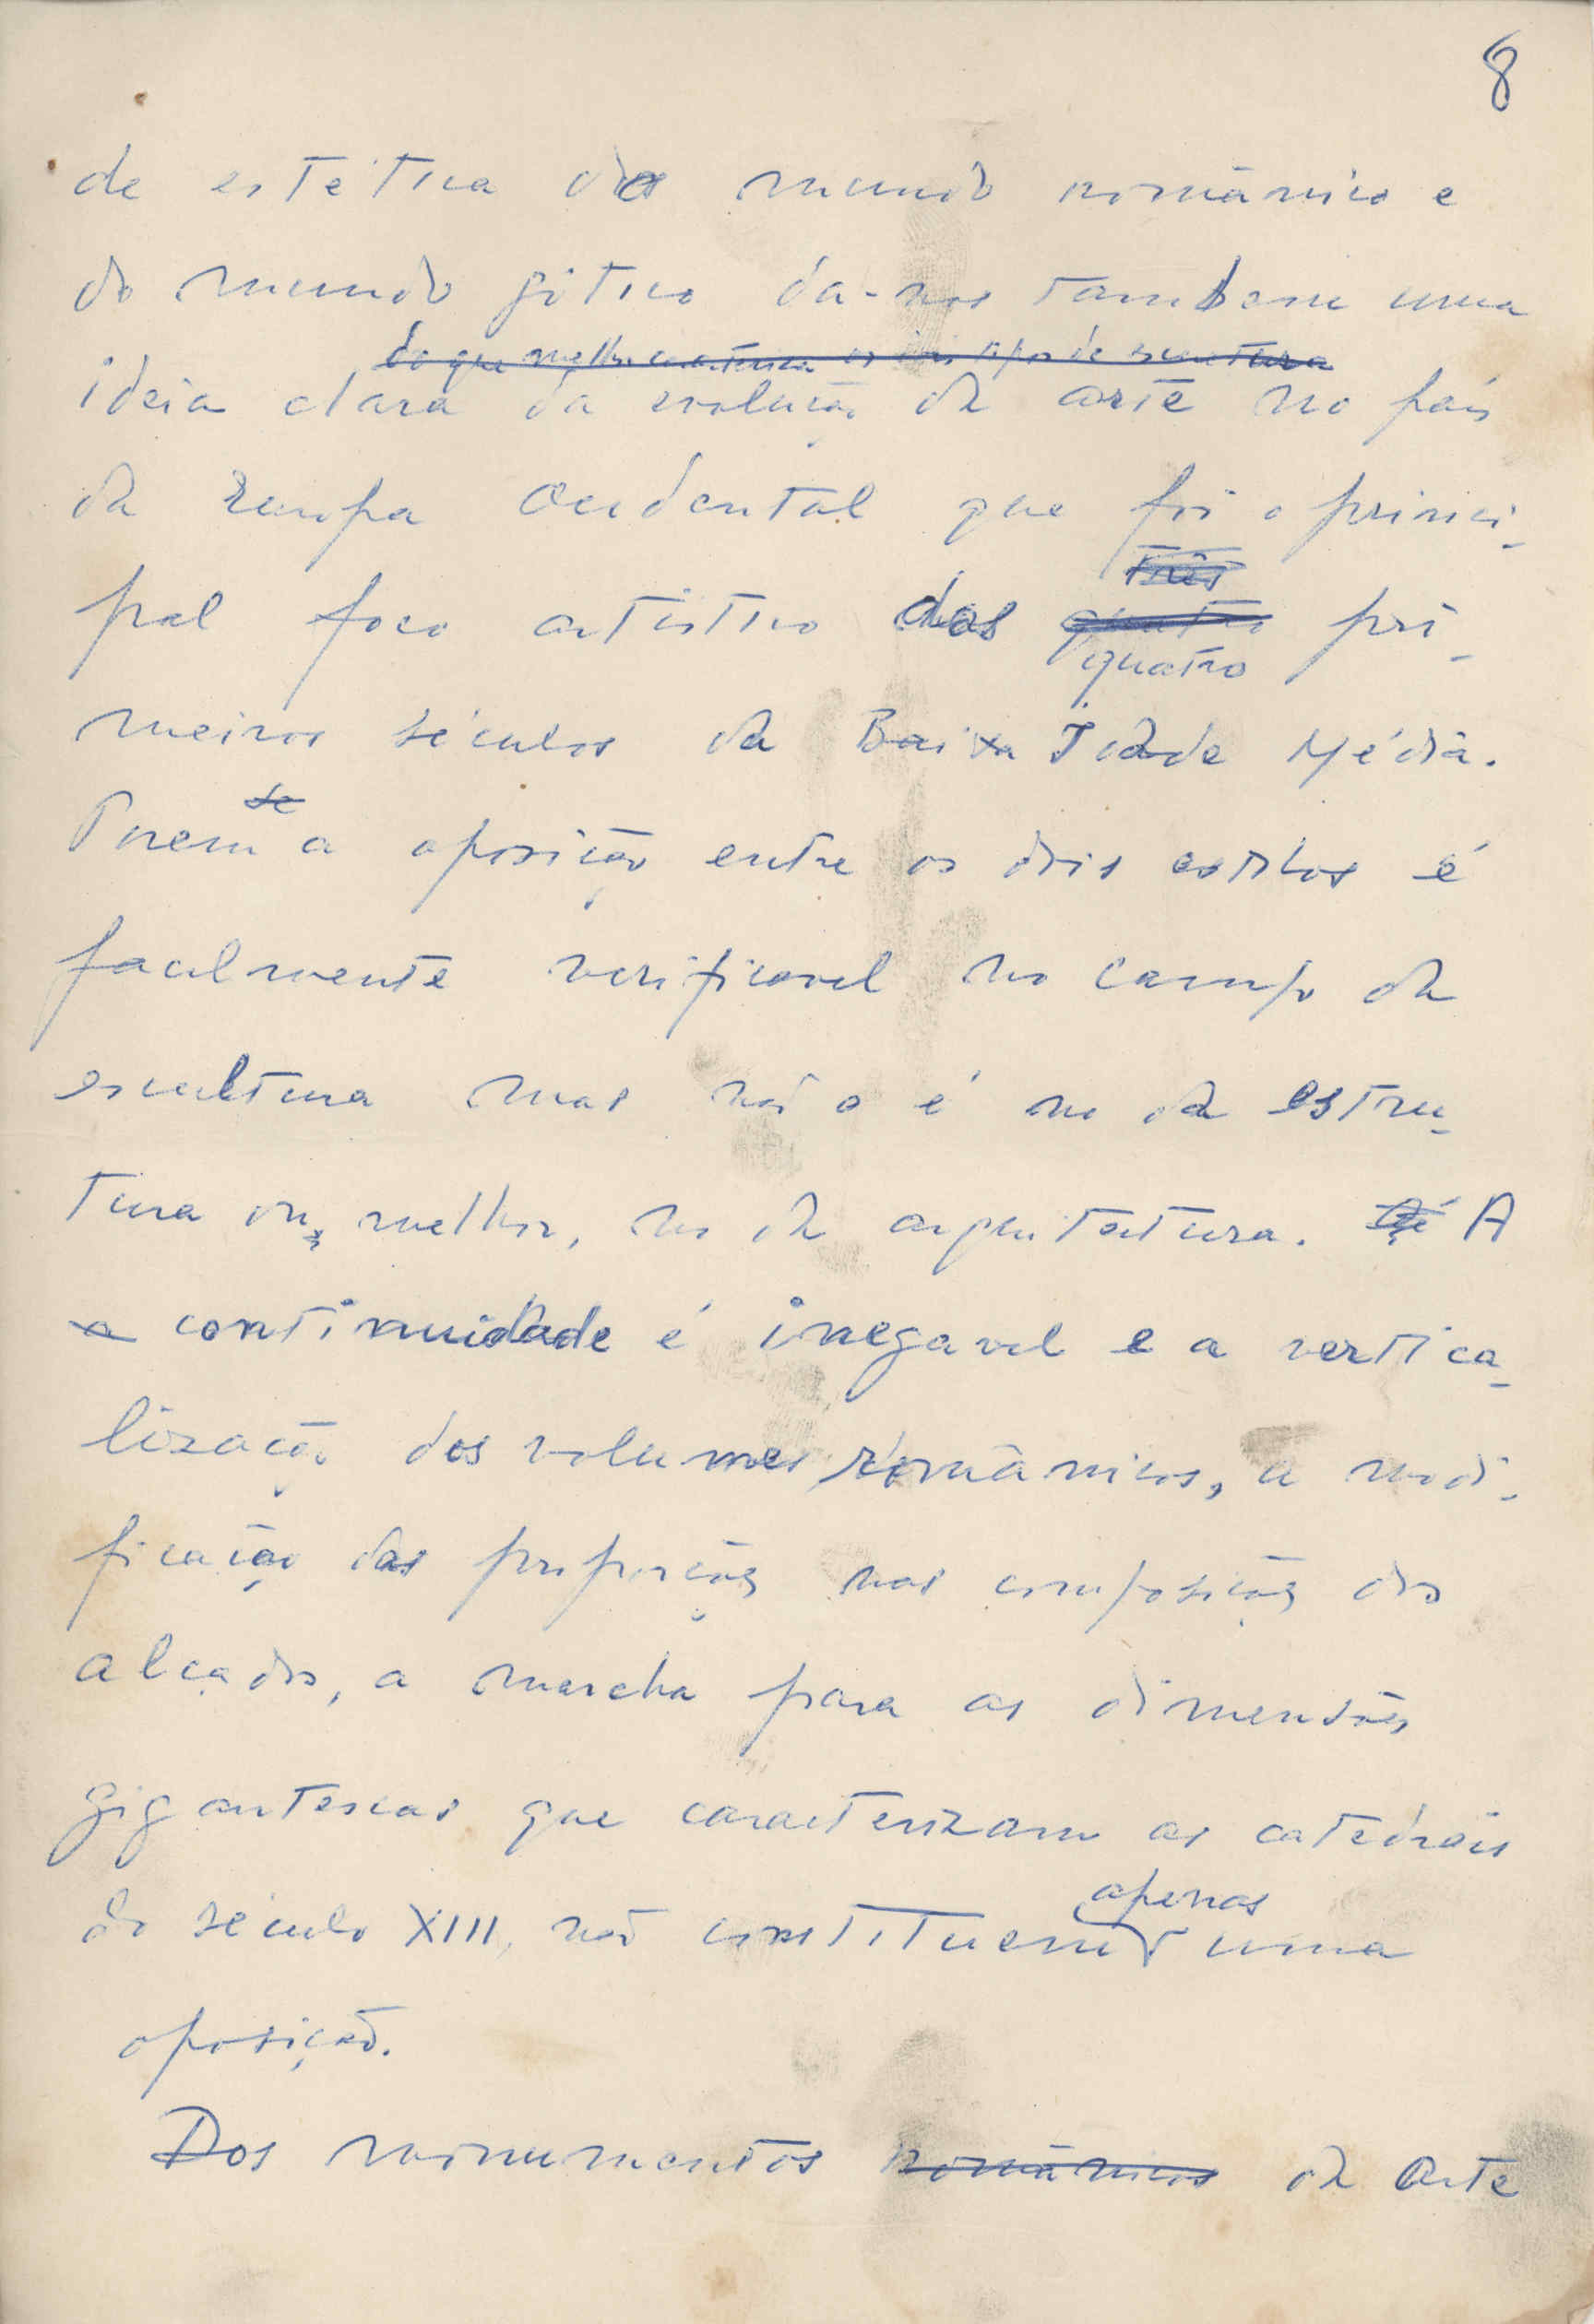 8
de estética do mundo românico e
do mundo gótico dá-nos tambem uma
do que melhor caracterisa os dois tipos de escultura
ideia clara da evolução da arte no país
da Europa Ocidental que foi o princi-
três
pal foco artístico dos quatro pri-
quatro
meiros séculos da Baixa Idade Média.
se
Porem a oposição entre os dois estilos é
facilmente verificavel no campo da
escultura mas não o é no da estru-
tura ou, melhor, no da arquitectura. A
a continuidade é inegavel e a vertica-
lização dos volumes românicos, a modi-
ficação das proporções nas composições dos
alçados, a marcha para as dimensões
gigantescas que caracterizam as catedrais
apenas
do século XIII, não constituem uma
oposição.
Dos monumentos românicos da Arte